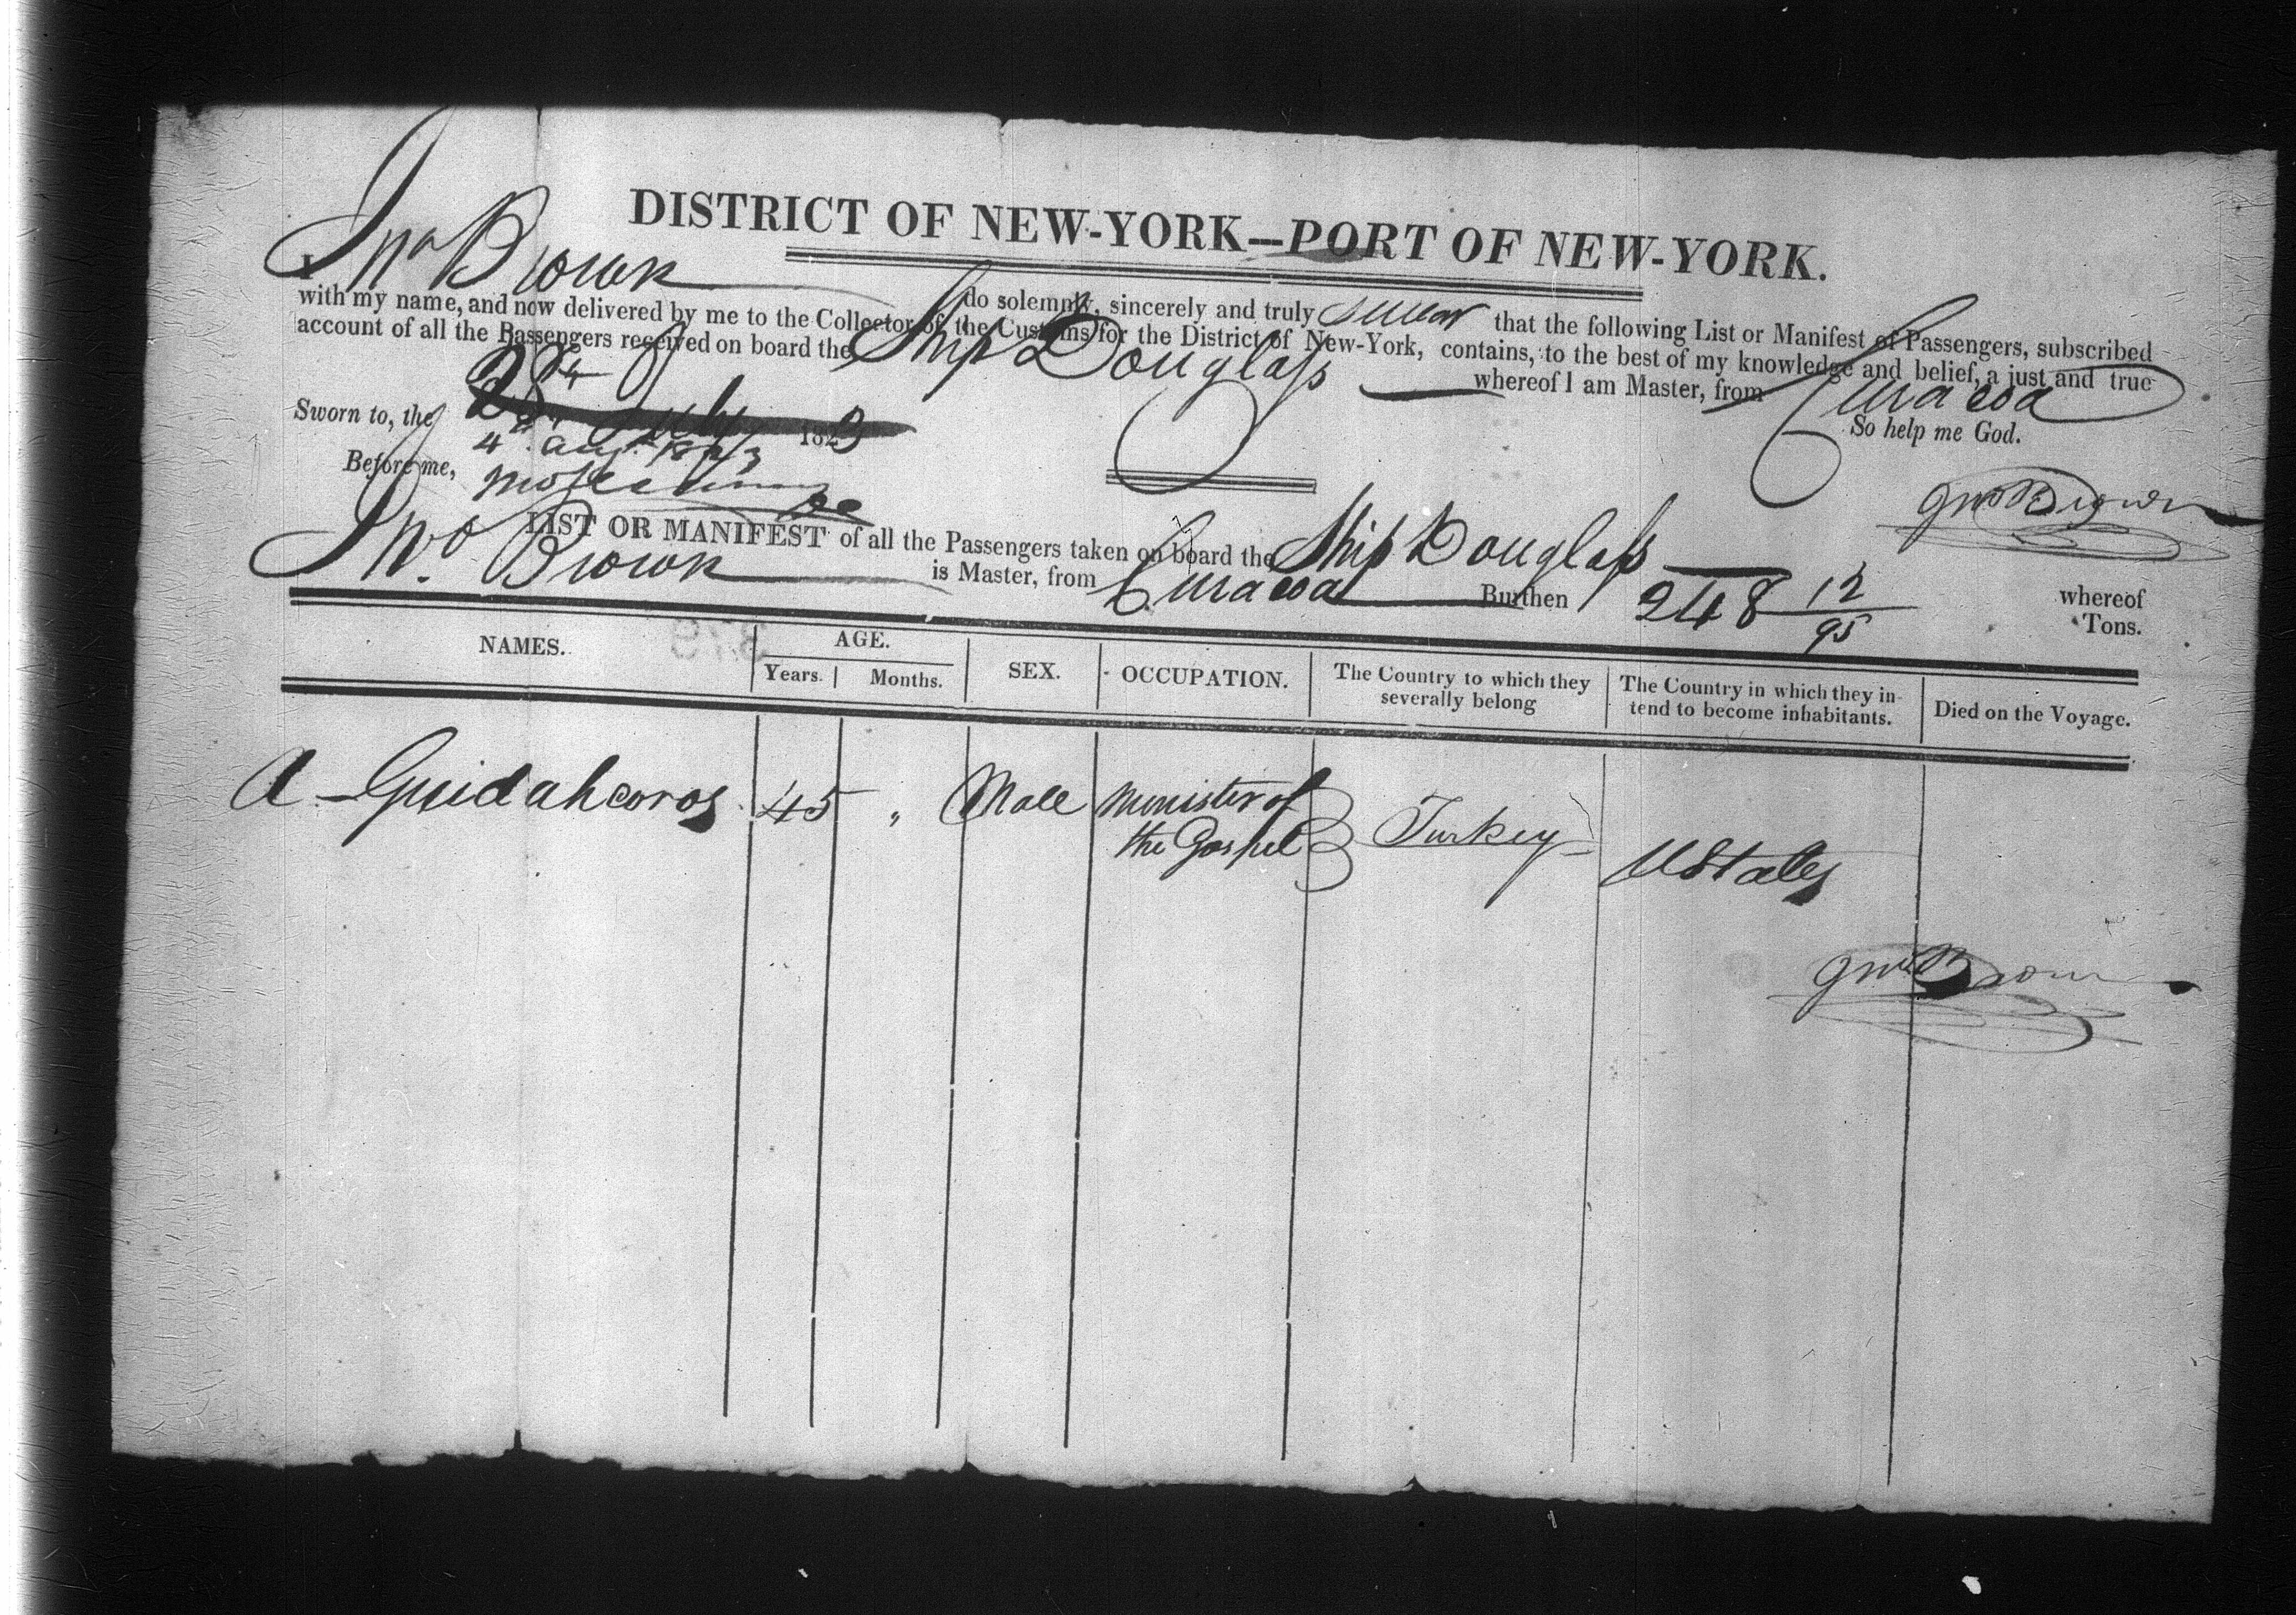 DISTRICT OF NEW-YORK—PORT OF NEW-YORK.
I Jno Brown do solemnly, sincerely and truly swear that the following List or Manifest of Passengers, subscribed
with my name, and now delivered by me to the Collector of the Customs for the District of New-York, contains, to the best of my knowledge and belief, a just and true
account of all the Passengers received on board the Ship Douglass whereof I am Master, from Curacoa
So help me God.
Sworn to, the 28th July 1823
4th Augt 1823
Before me,
Jno Brown
LIST OR MANIFEST of all the Passengers taken on board the Ship Douglass whereof
Jno. Brown is Master, from Curacoa Burthen 248 12/95 Tons.
NAMES. AGE. SEX. OCCUPATION. The Country to which they severally belong The Country in which they intend to become inhabitants. Died on the Voyage.
Years. Months.
A - Guidahcoros 45 " Male Minister of the Gospel Turkey UStates
Jno Brown